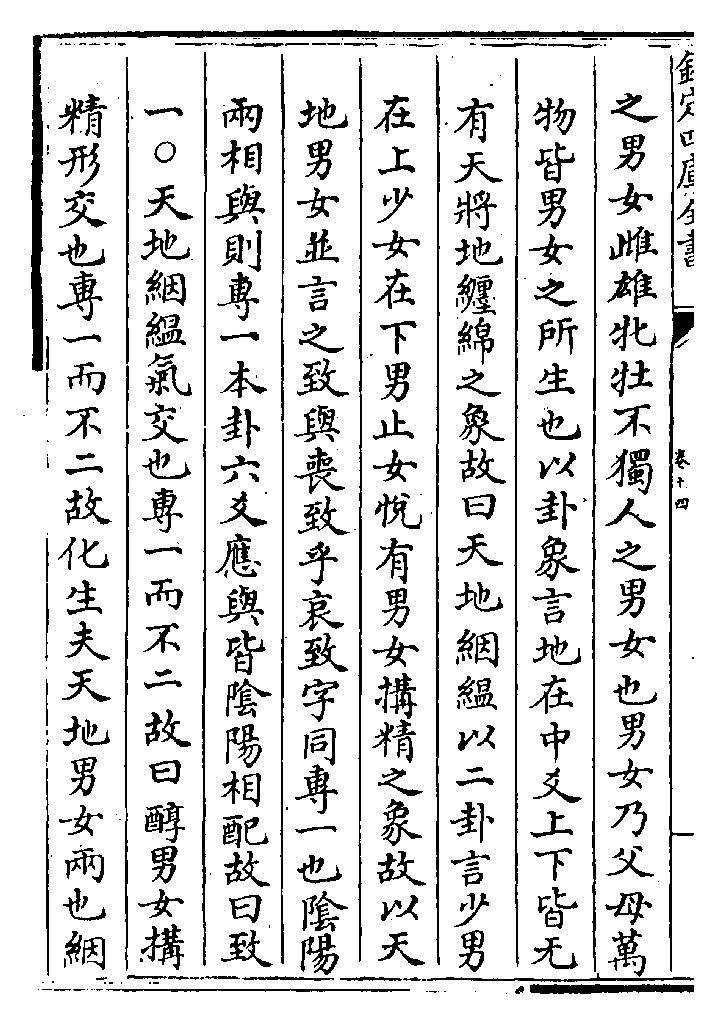 欽定四庫全書
卷十四
之男女雌雄牝牡不獨人之男女也男女乃父母萬
物皆男女之所生也以卦象言地在中爻上下皆无
有天將地纏綿之象故曰天地絪縕以二卦言少男
在上少女在下男止女悅有男女搆精之象故以天
地男女並言之致與喪致乎哀致字同專一也陰陽
兩相與則專一本卦六爻應與皆陰陽相配故曰致
一○天地絪縕氣交也專一而不二故曰醇男女搆
精形交也專一而不二故化生夫天地男女兩也絪